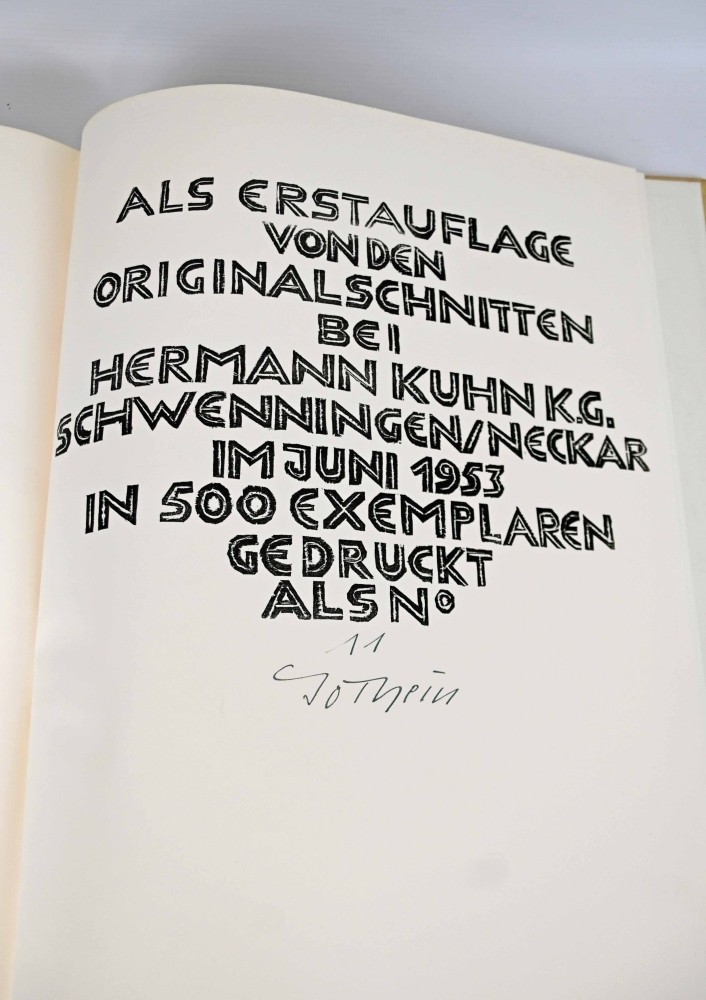 ALS ERSTAUFLAGE
VON DEN
ORIGINALSCHNITTEN
BEI
HERMANN KUHN K.G.
SCHWENNINGEN/NECKAR
IM JUNI 1953
IN 500 EXEMPLAREN
GEDRUCKT
ALS NO
11